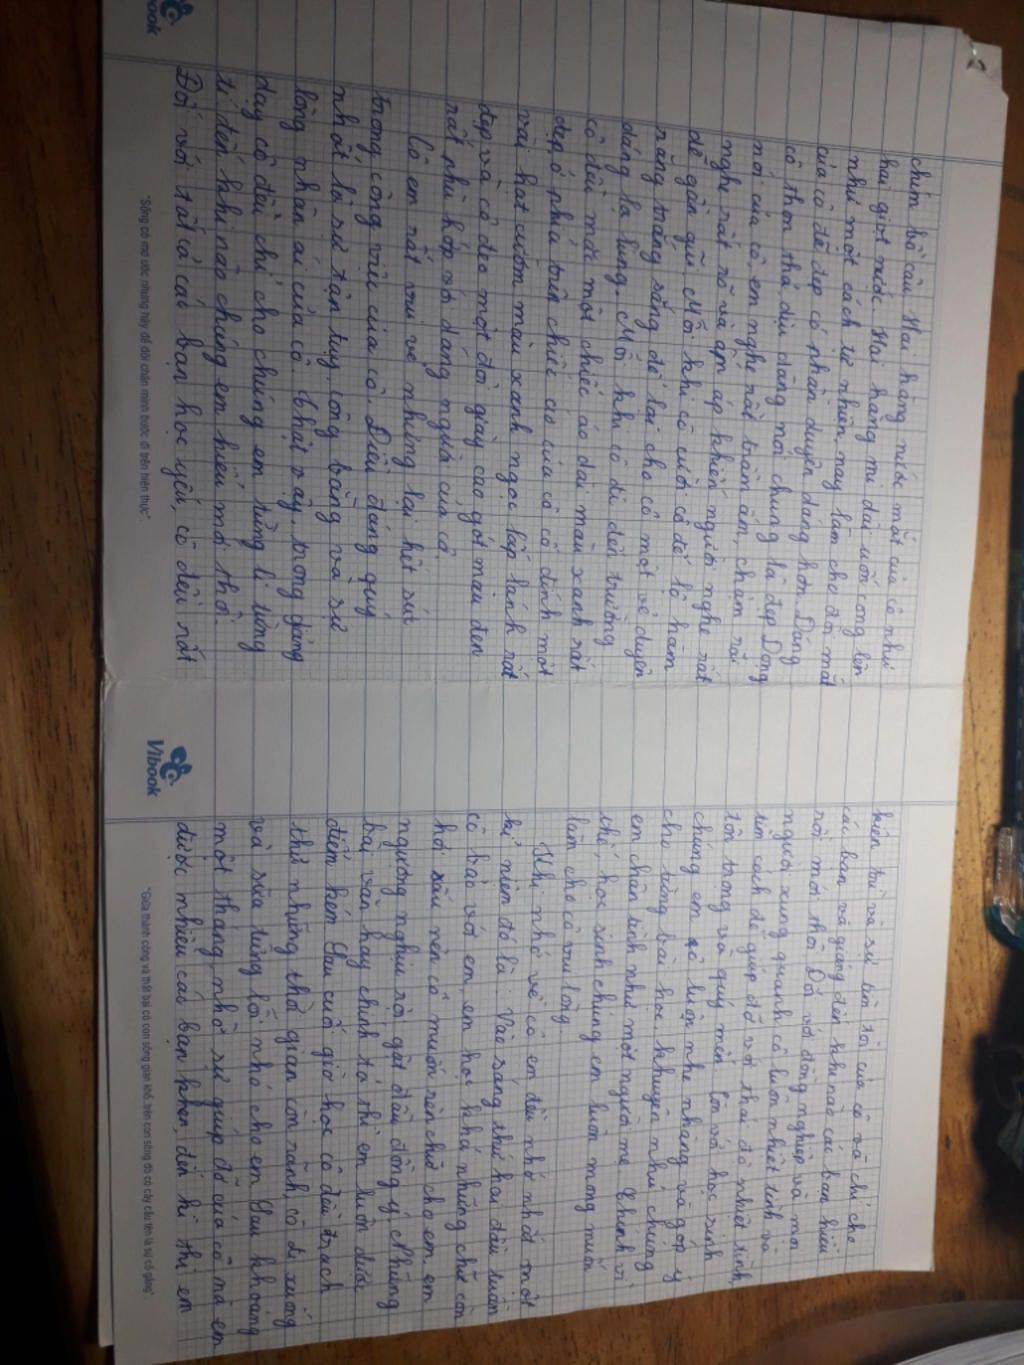 chim bồ câu. Hai hàng nước mắt của cô như
hai giọt nước. Hai hàng mi dài uốn cong lên
như một cách tự nhiên, nay làm cho đôi mắt
của cô đẹp đẹp có phần duyên dáng hơn. Dáng
cô thon thả dịu dàng nói chung là đẹp. Dọng
nói của cô em nghe rất trầm ấm, chậm rãi
nghe rất rõ và ấm áp khiến người nghe rất
dễ gần gũi. Mỗi khi cô cười cô để lộ hàm
răng trắng sáng để lại cho cô một vẻ duyên
dáng lạ lùng. Mỗi khi cô đi đến trường
cô đều mặc một chiếc áo dài màu xanh rất
đẹp ở phía trên chiếc áo của cô có đính một
vài hạt cườm màu xanh ngọc lấp lánh rất
đẹp và cô đeo một đôi giày cao gót màu đen
rất phù hợp với dáng người của cô.
Cô em rất vui vẻ nhưng lại hết sức
trong công việc của cô. Điều đáng quý
nhất là sự tận tụy, công bằng và sự
lòng nhân ái của cô. Thật vậy, trong giảng
dạy cô đều chỉ cho chúng em từng li từng
tí đến khi nào chúng em hiểu mới thôi.
Đối với tất cả các bạn học yếu, cô đều rất
"Sống có mơ ước nhưng hãy để đôi chân mình bước đi trên hiện thực".
Vibook
kiên trì và sự bền bỉ của cô và chỉ cho
các bạn và giảng đến khi nào các bạn hiểu
rồi mới thôi. Đối với đồng nghiệp và mọi
người xung quanh cô luôn nhiệt tình và
tìm cách để giúp đỡ với thái độ nhiệt tình,
tôn trọng và quý mến. Còn với học sinh
chúng em cô luôn nhẹ nhàng và góp ý
cho từng bài học, khuyên nhủ chúng
em chân tình như một người mẹ. Chính vì
thế, học sinh chúng em luôn mong muốn
làm cho cô vui lòng.
Khi nhớ về cô em đều nhớ nhất một
kỉ niệm đó là: Vào sáng thứ hai đầu tuần
cô bảo với em, em học khá nhưng chữ còn
hơi xấu nên cô muốn rèn chữ cho em, em
ngượng nghịu rồi gật đầu đồng ý. Những
bài văn hay chính tả thì em luôn dưới
điểm kém. Sau cuối giờ học cô đều trách
thủ những thời gian còn rảnh, cô đi xuống
và sửa từng lỗi nhỏ cho em. Sau khoảng
một tháng nhờ sự giúp đỡ của cô mà em
được nhiều các bạn khen, đến kì thi em
"Giữa thành công và thất bại có con sông gian khổ, trên con sông đó có cây cầu tên là sự cố gắng"
Vibook